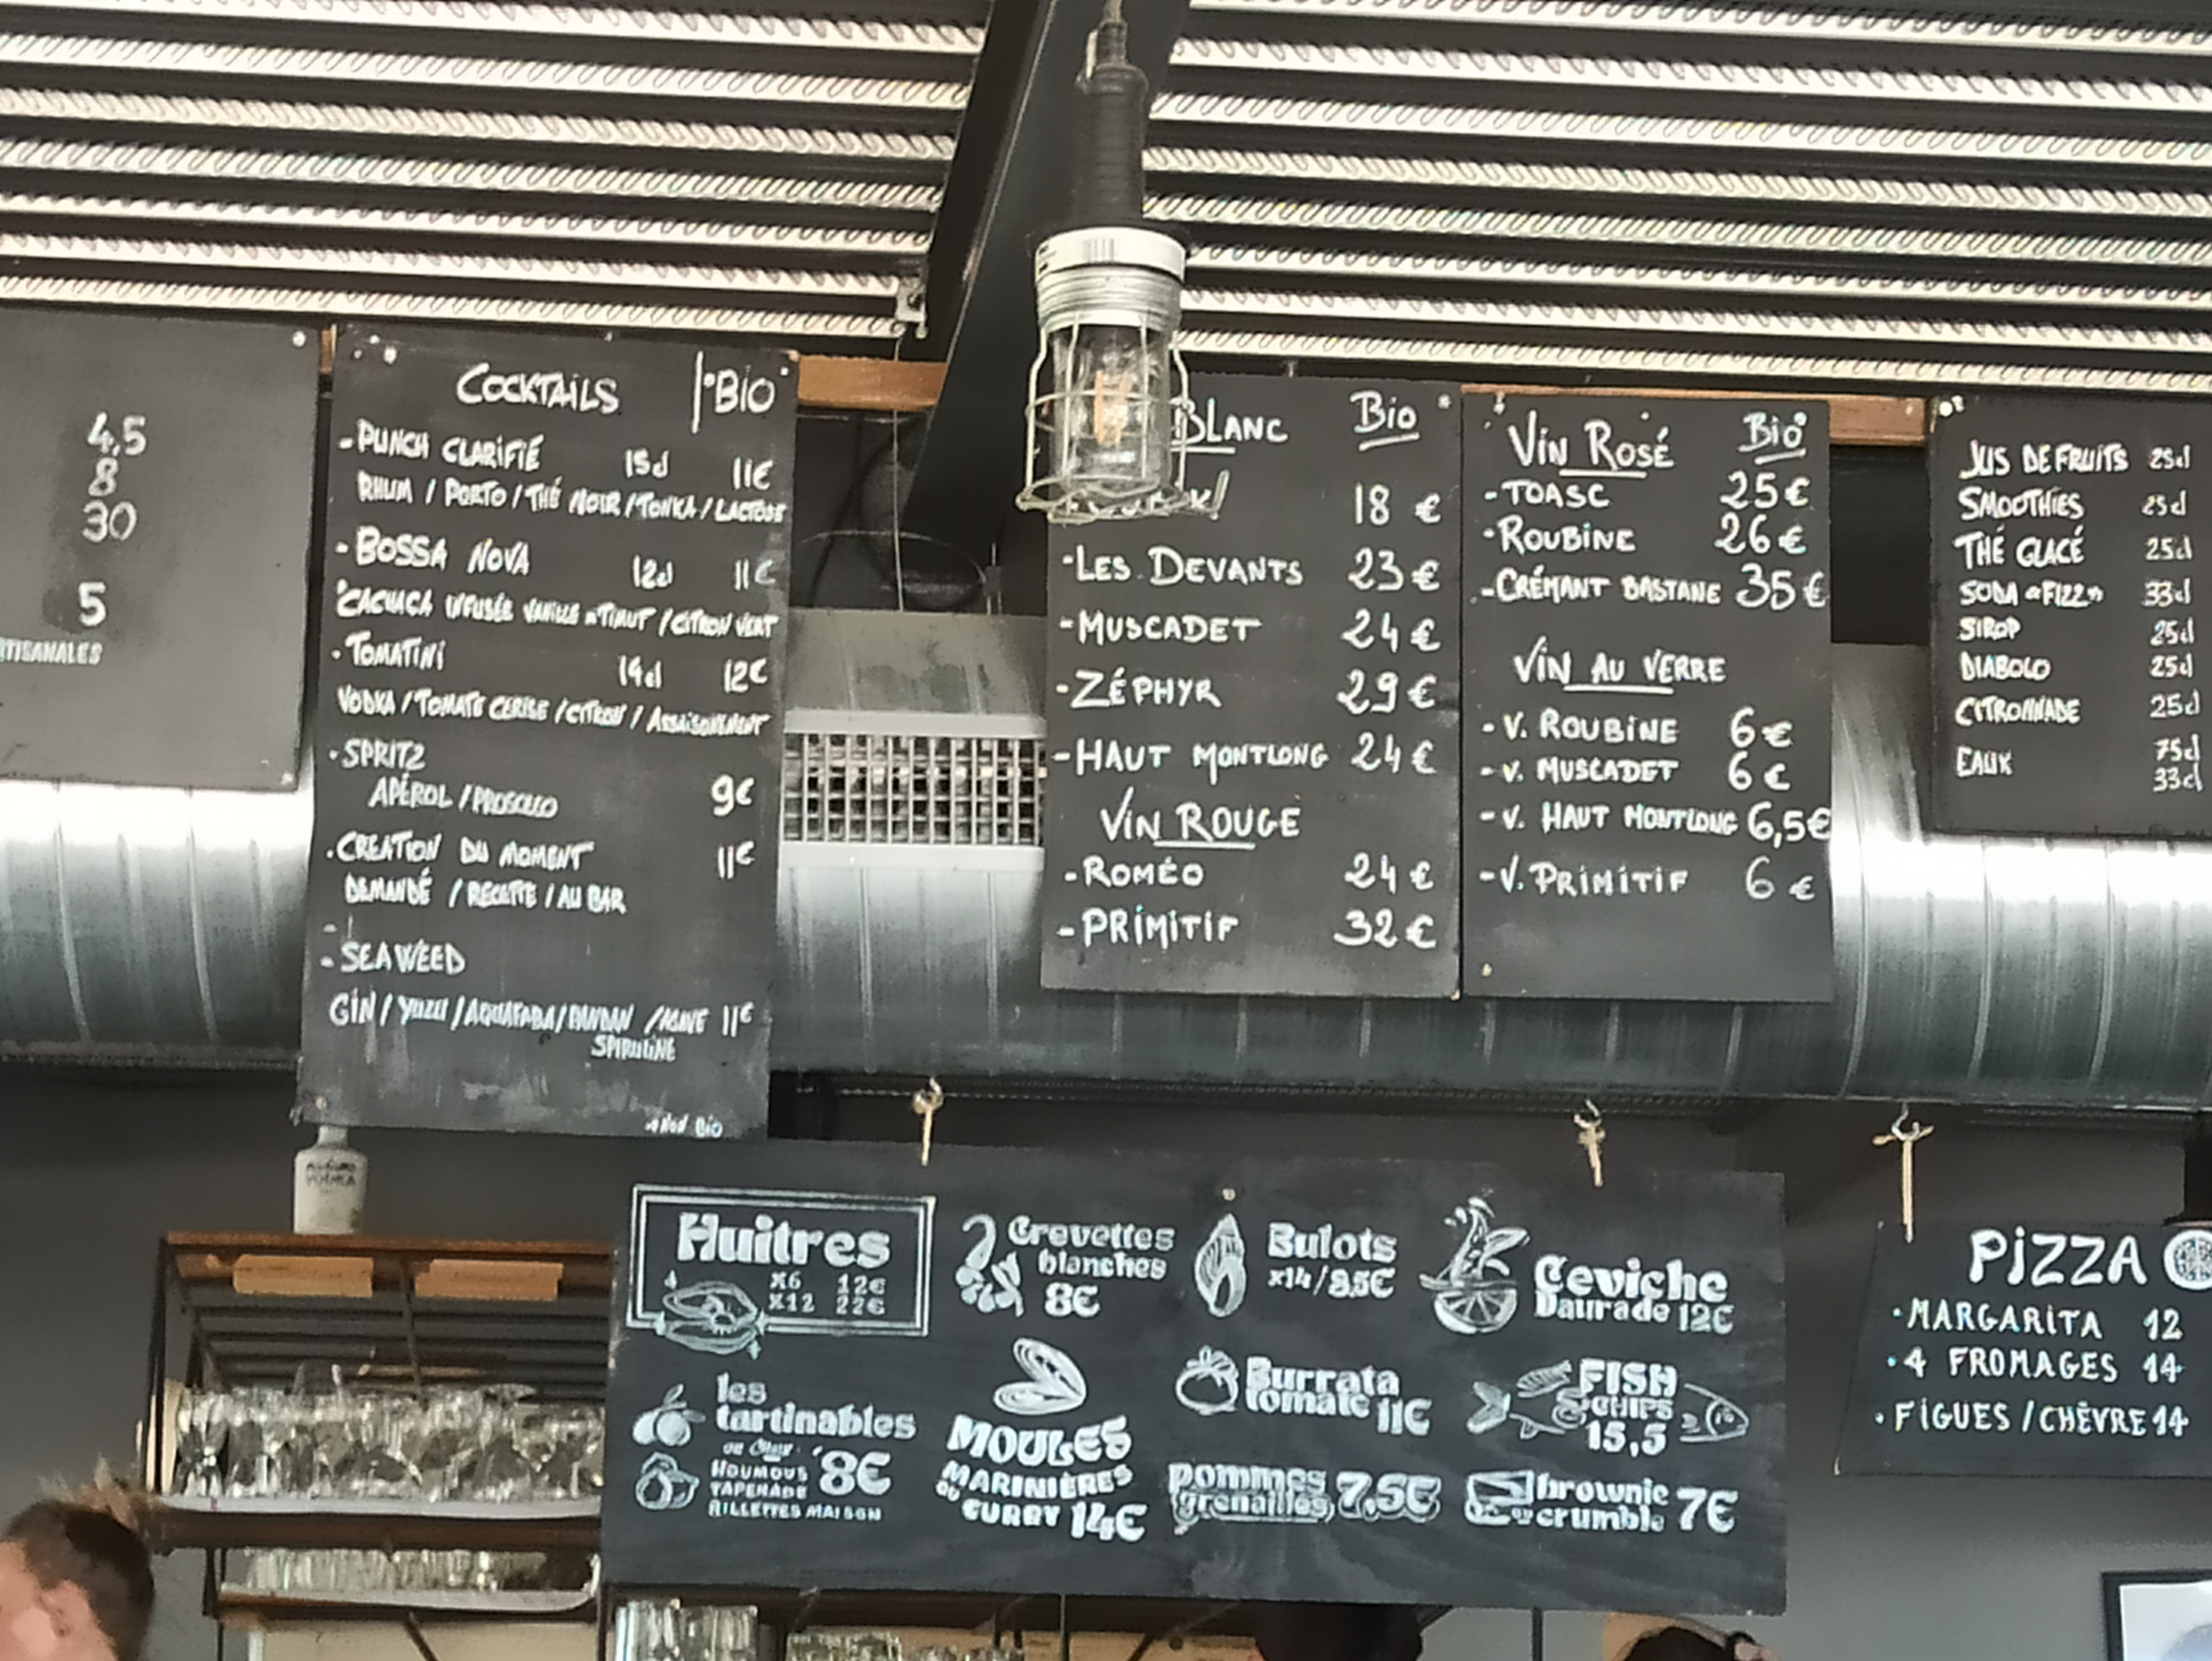 4,5
8
30
5
TISANALES
COCKTAILS | °BIO
- PUNCH CLARIFIÉ 15cl 11€
RHUM / PORTO / THÉ NOIR / TONKA / LACTOSE
- BOSSA NOVA 12cl 11€
CACHACA INFUSÉE VANILLE TIMUT / CITRON VERT
- TOMATINI 14cl 12€
VODKA / TOMATE CERISE / CITRON / ASSAISONEMENT
- SPRITZ
APÉROL / PROSECCO 9€
. CREATION DU MOMENT 11€
DEMANDÉ / RECETTE / AU BAR
- SEAWEED
GIN / YUZU / AQUAFABA / PANDAN / AGAVE 11€
SPIRULINE
NON BIO
BLANC Bio
18 €
- LES DEVANTS 23 €
- MUSCADET 24 €
- ZÉPHYR 29 €
- HAUT MONTLONG 24 €
VIN ROUGE
- ROMÉO 24 €
- PRIMITIF 32 €
VIN ROSÉ Bio
- TOASC 25 €
- ROUBINE 26 €
- CRÉMANT BASTANE 35 €
VIN AU VERRE
- V. ROUBINE 6 €
- V. MUSCADET 6 €
- V. HAUT MONTLONG 6,5€
- V. PRIMITIF 6 €
JUS DE FRUITS 25cl
SMOOTHIES 25cl
THÉ GLACÉ 25cl
SODA "FIZZ" 33cl
SIROP 25cl
DIABOLO 25cl
CITRONNADE 25cl
EAUX 75cl
33cl
VODKA
Huitres
x6 12€
x12 22€
Crevettes
blanches
8€
Bulots
x14/8.5€
Ceviche
Daurade 12€
les
tartinables
ou
HOUMOUS 8€
TAPENADE
RILLETTES MAISON
MOULES
MARINIÈRES
OU
CURRY 14€
Burrata
tomate 11€
FISH
& CHIPS
15,5
pommes
grenailles 7,5€
brownie
ou crumble 7€
PIZZA
• MARGARITA 12
• 4 FROMAGES 14
• FIGUES / CHÈVRE 14